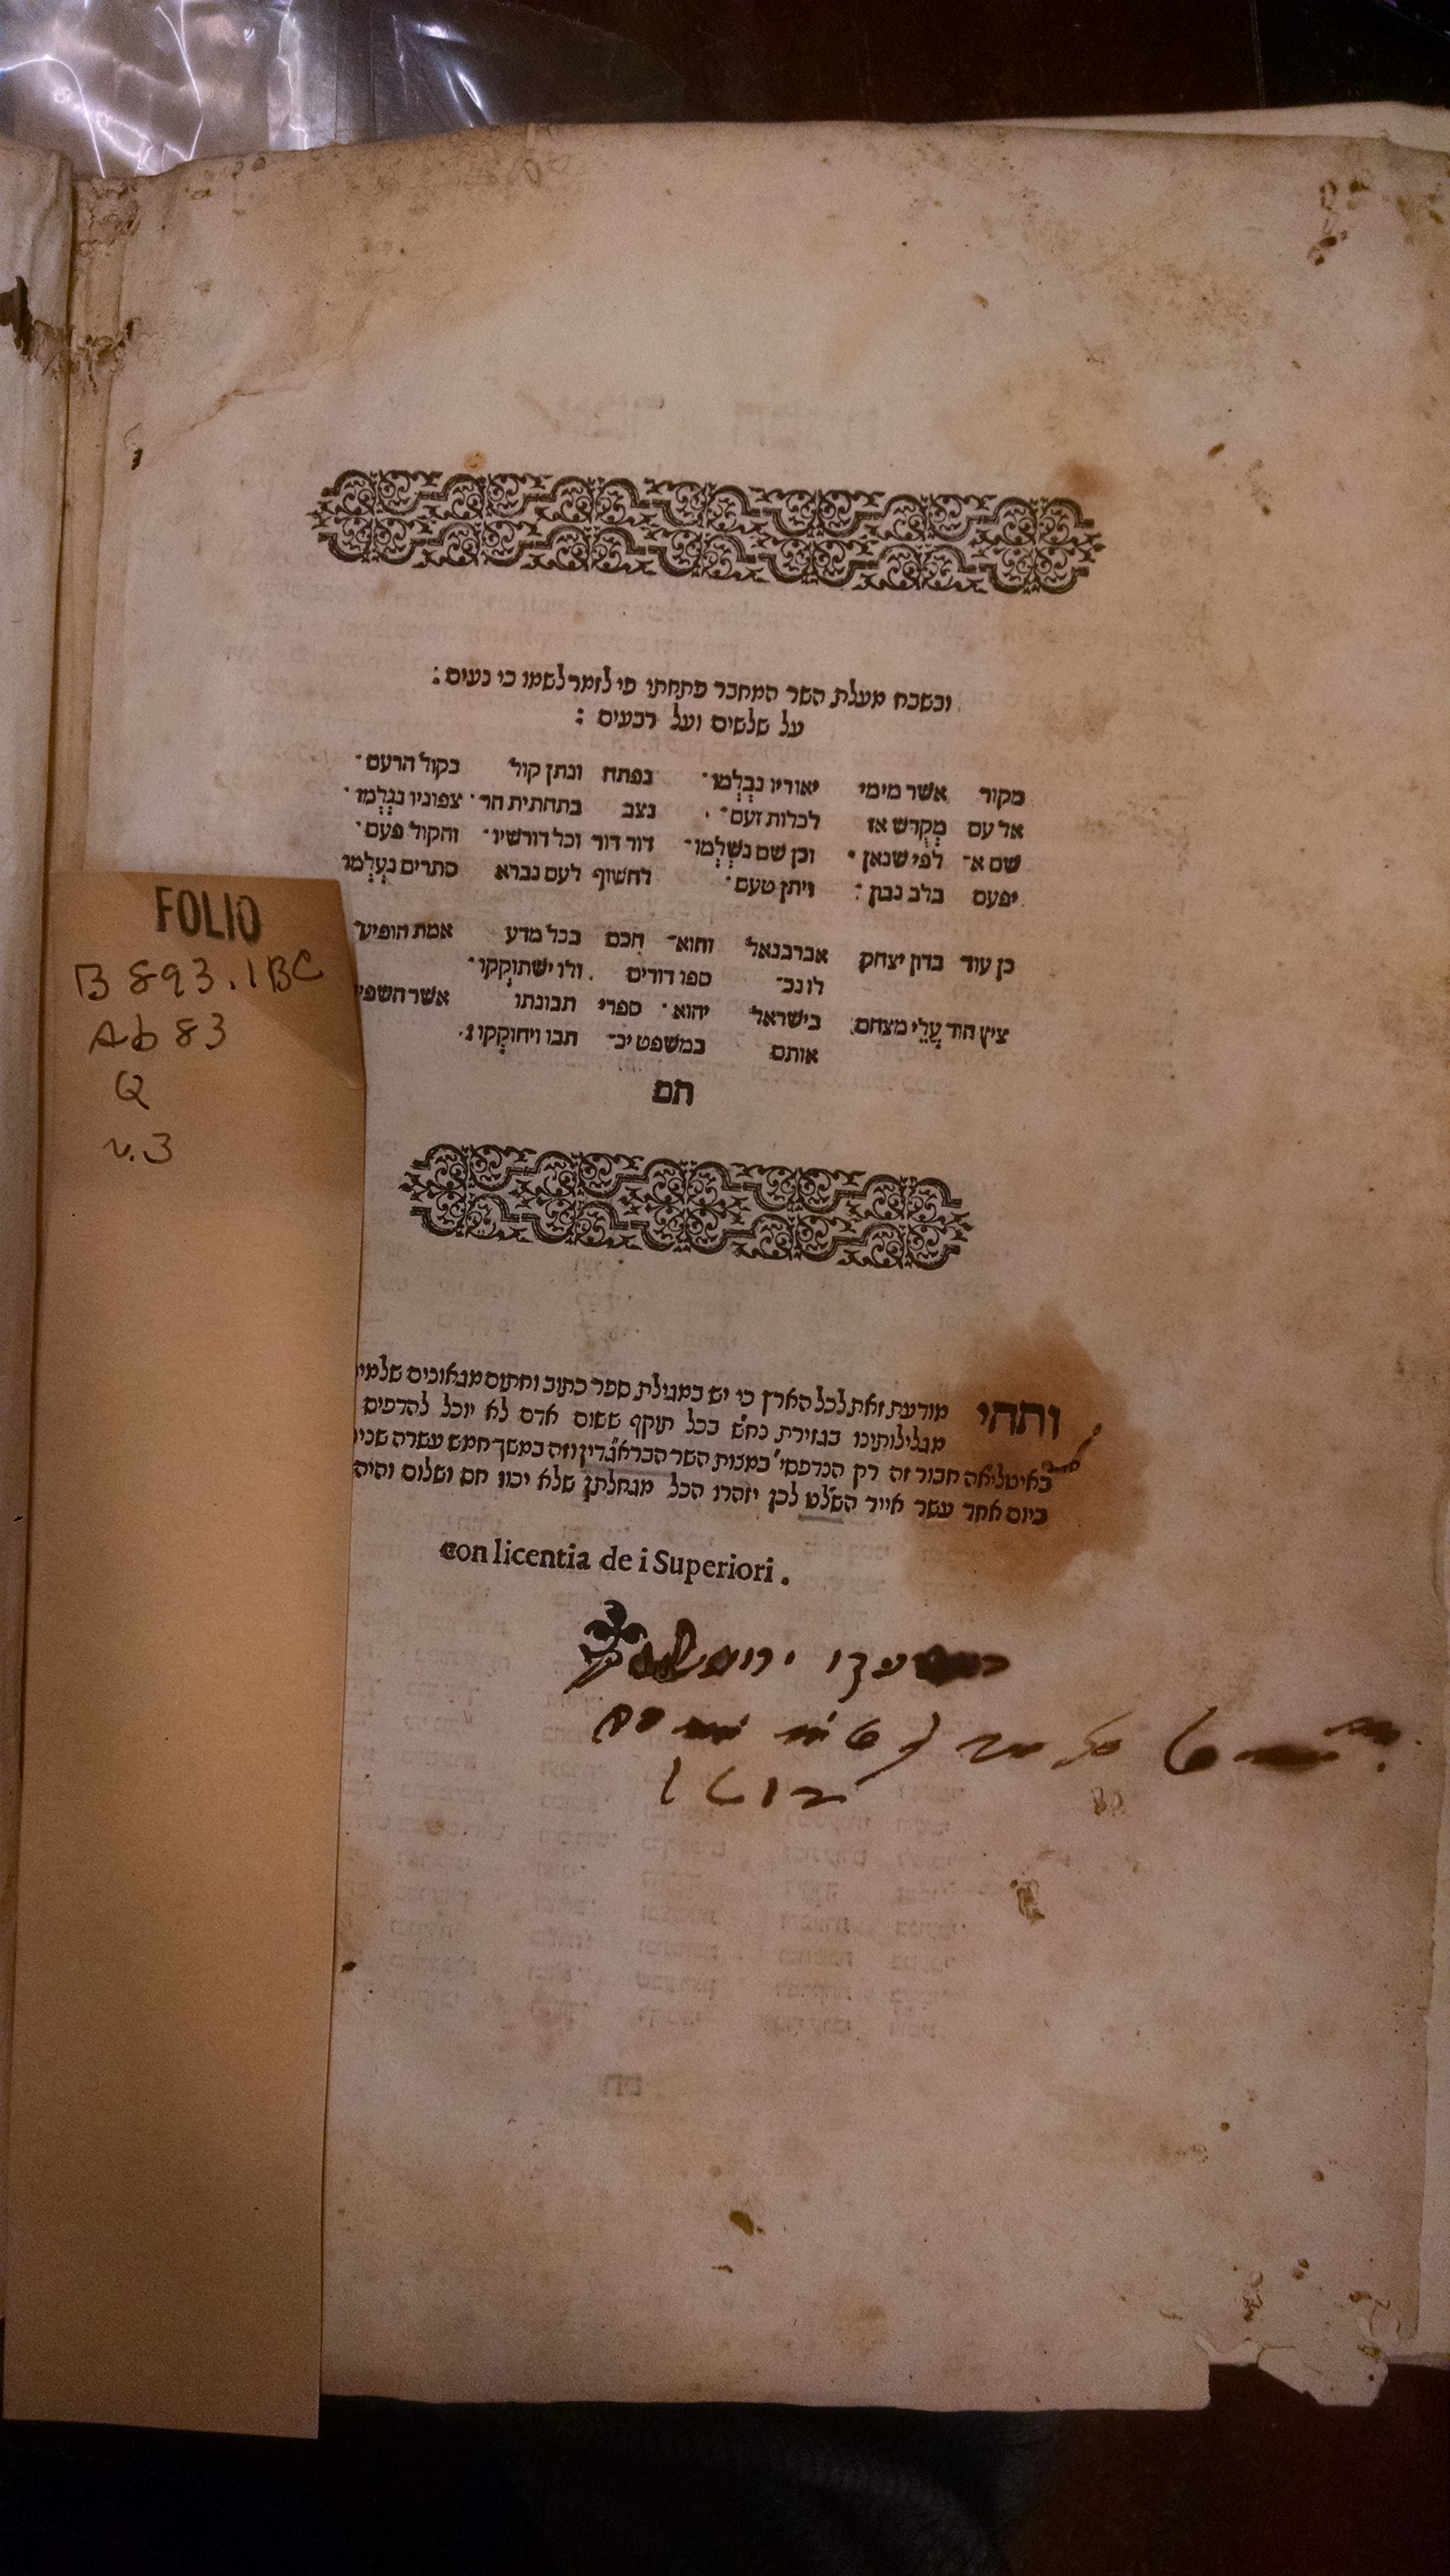 ובשבח מעלת השר המחבר פתחתי פי לזמר לשמו כי נעים :
על שלשים ועל רבעים :
מקור אשר מימי יאוריו נבְלְמו · נפתח ונתן קול כקול הרעם ·
אל עם מְקְדש אז לכלות זעם · נצב בתחתית הר · צפוניו נגְלְמו ·
שם א־ לפי שנאן · וכן שם נשְלְמו · דור דור וכל דורשיו · והקול פעם ·
יפעם בלב נבון : ויתן טעם · לחשוף לעם נברא סתרים נעְלְמו
כן עוד בדון יצחק אברבנאל והוא־ חכם בכל מדע אמת הופיע־
לו נכ־ ספו דודים . ולו ישתוקְקו ·
ציץ הוד עֲלֵי מצחם בישראל יהוא · ספרי תבונתו אשר השפי
אותם במשפט יכ־ תבו ויחוקְקו :
תם
ותהי מודעת זאת לכל הארץ כי יש במגילת ספר כתוב וחתום מגאוכים שלמי
מגלילותינו בגזירת נח"ש בכל תוקף ששום אדם לא יוכל להדפים
באיטליאה חבור זה רק הנדפסי' במצות השר הבראגדין וזה במשך חמש עשרה שני
ביום אחד עשר אייר השלט לכן יזהרו הכל מגחלתן שלא יכוו חם ושלום והיה
con licentia de i Superiori .
1612
FOLIO
B 893.1BC
Ab 83
Q
v.3